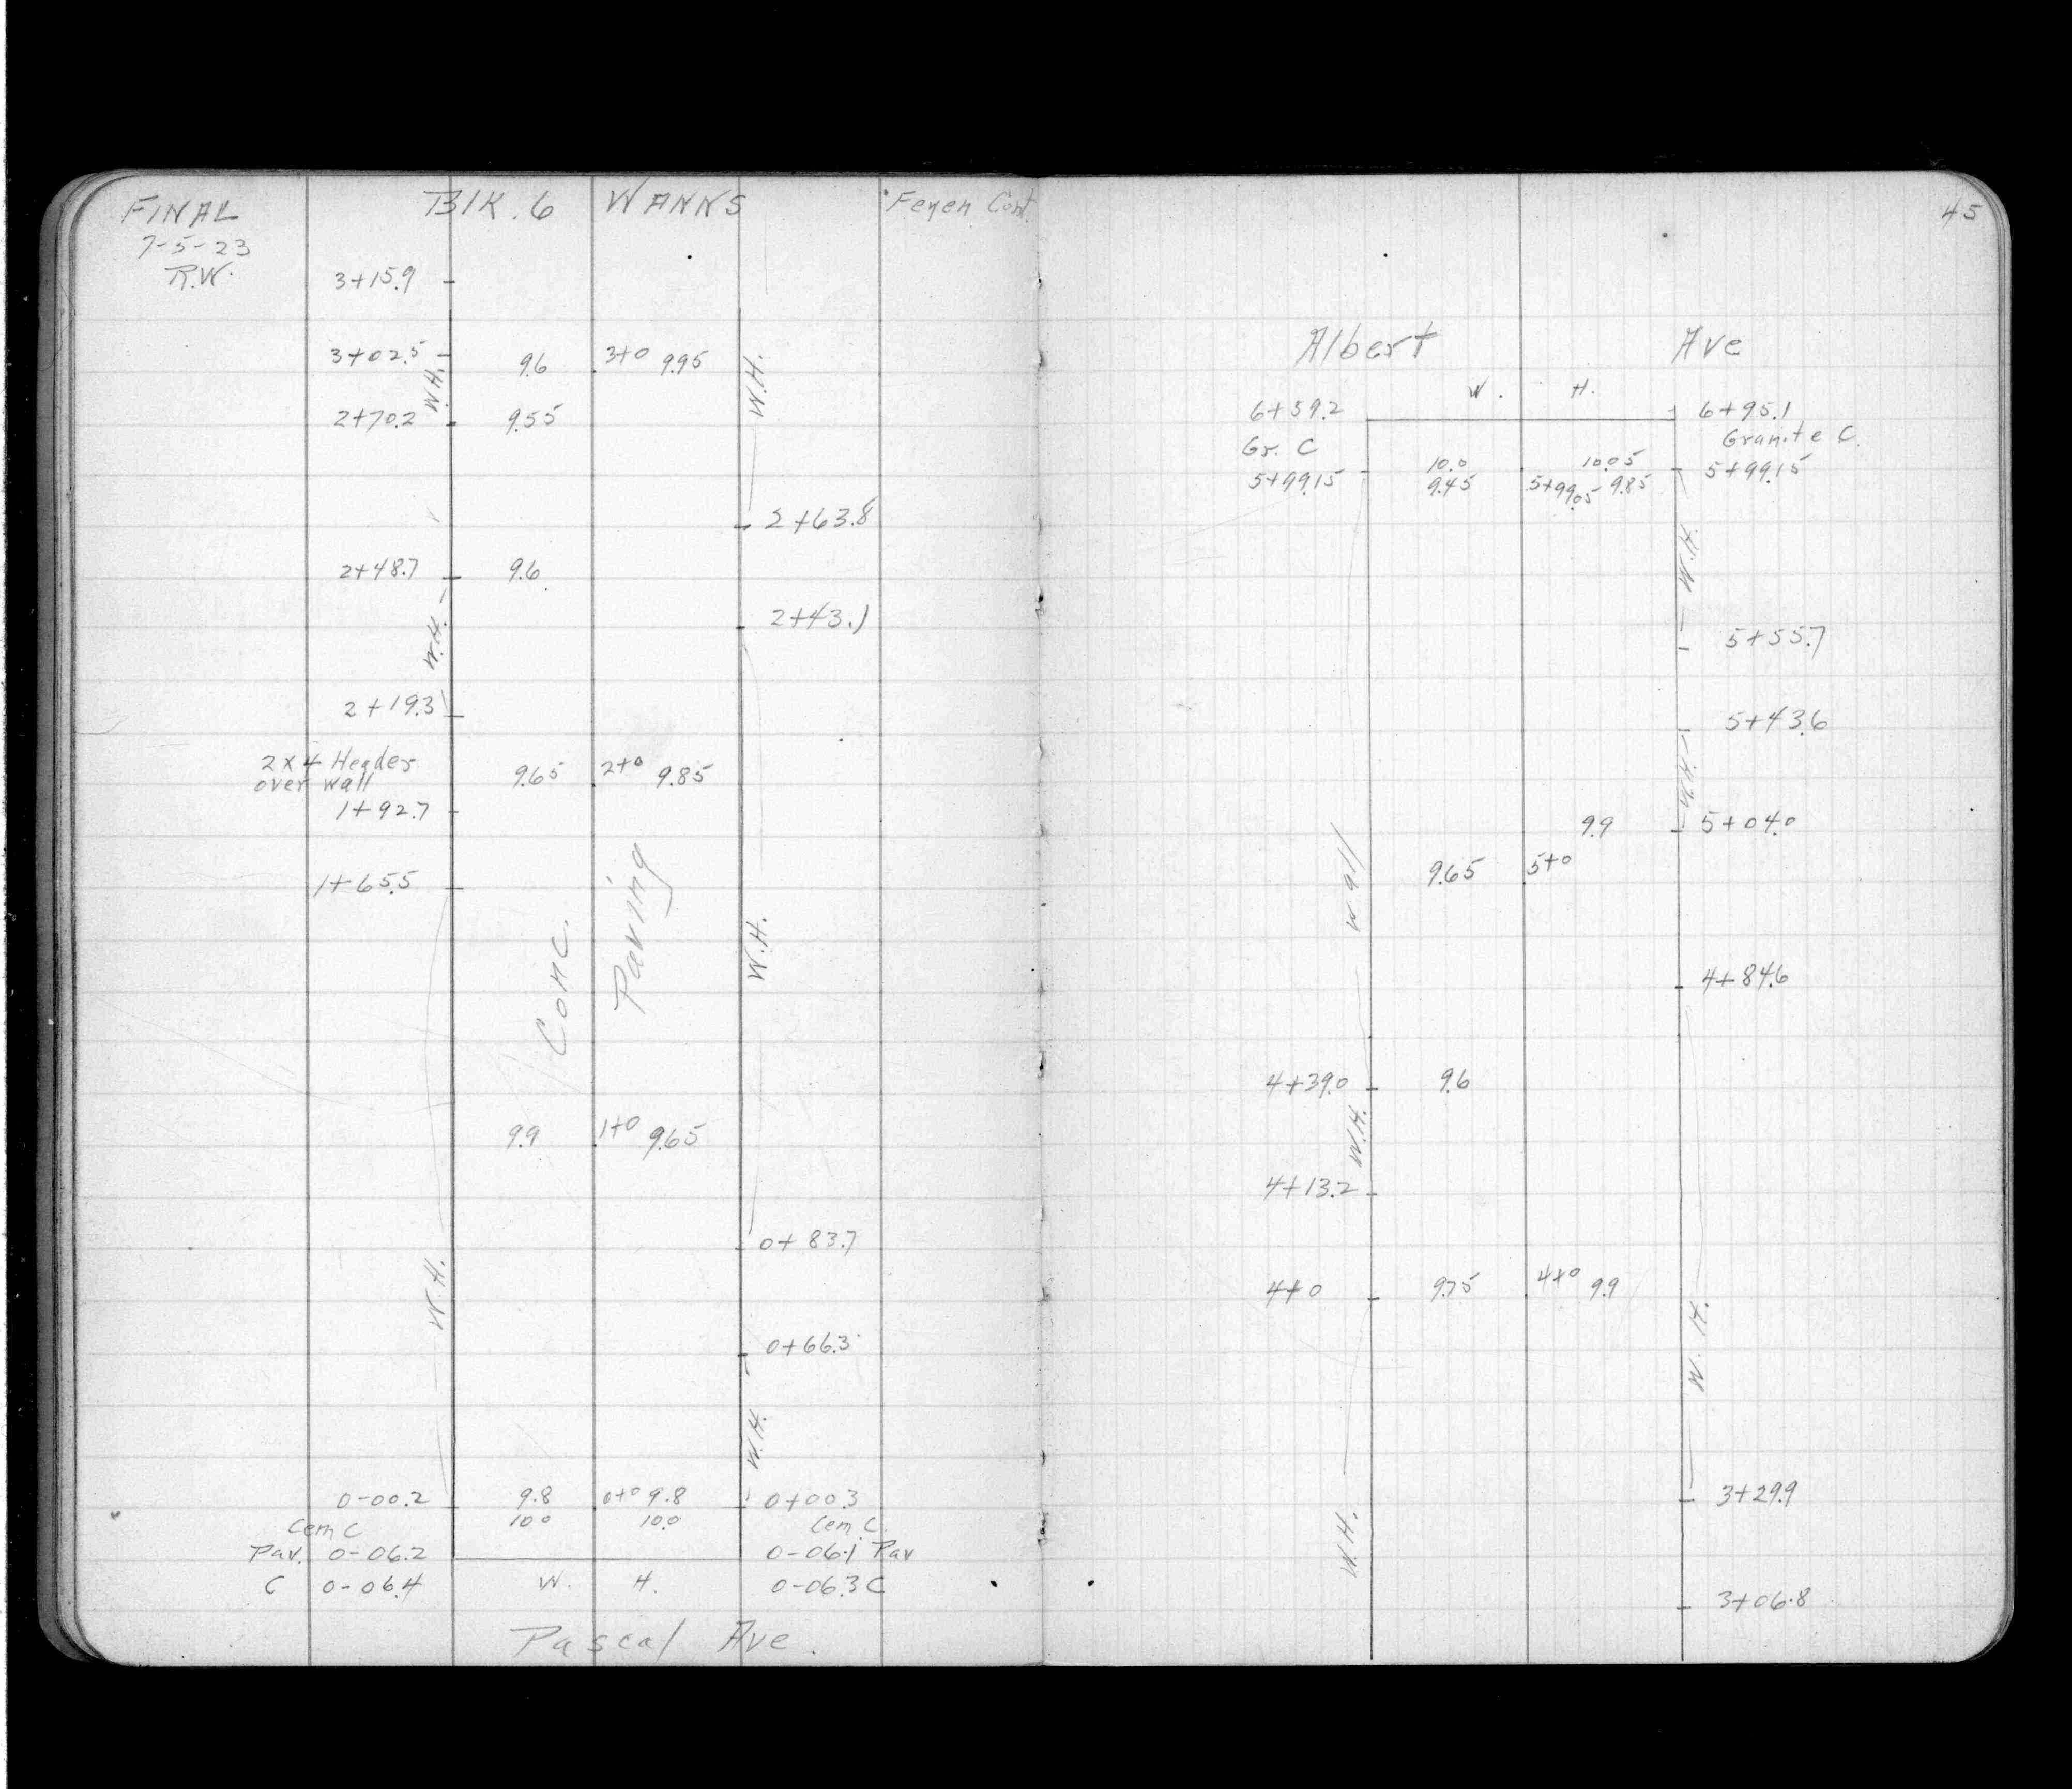 FINAL BLK. 6 WANNS Feyen Cont.
7-5-23
R.W.
3+15.9
3+02.5 9.6 3+0 9.95
W.H. W.H.
2+70.2 9.55
2+63.8
2+48.7 9.6
2+43.1
W.H.
2+19.3
2x4 Header
over wall 9.65 2+0 9.85
1+92.7
1+65.5
Conc. Paving
W.H.
9.9 1+0 9.65
0+83.7
W.H.
0+66.3
W.H.
0-00.2 9.8 0+0 9.8 0+00.3
Cem C 10.0 10.0 Cem C.
Pav. 0-06.2 0-06.1 Pav
C 0-06.4 W. H. 0-06.3 C
Pascal Ave.
45
Albert Ave
W. H.
6+59.2 6+95.1
Gr. C Granite C.
10.0 10.05
5+99.15 9.45 5+99.05 9.85 5+99.15
W.H.
5+55.7
5+43.6
W.H.
9.9 5+04.0
Wall 9.65 5+0
4+84.6
4+39.0 9.6
W.H.
4+13.2
4+0 9.75 4+0 9.9
W.H.
3+29.9
W.H.
3+06.8